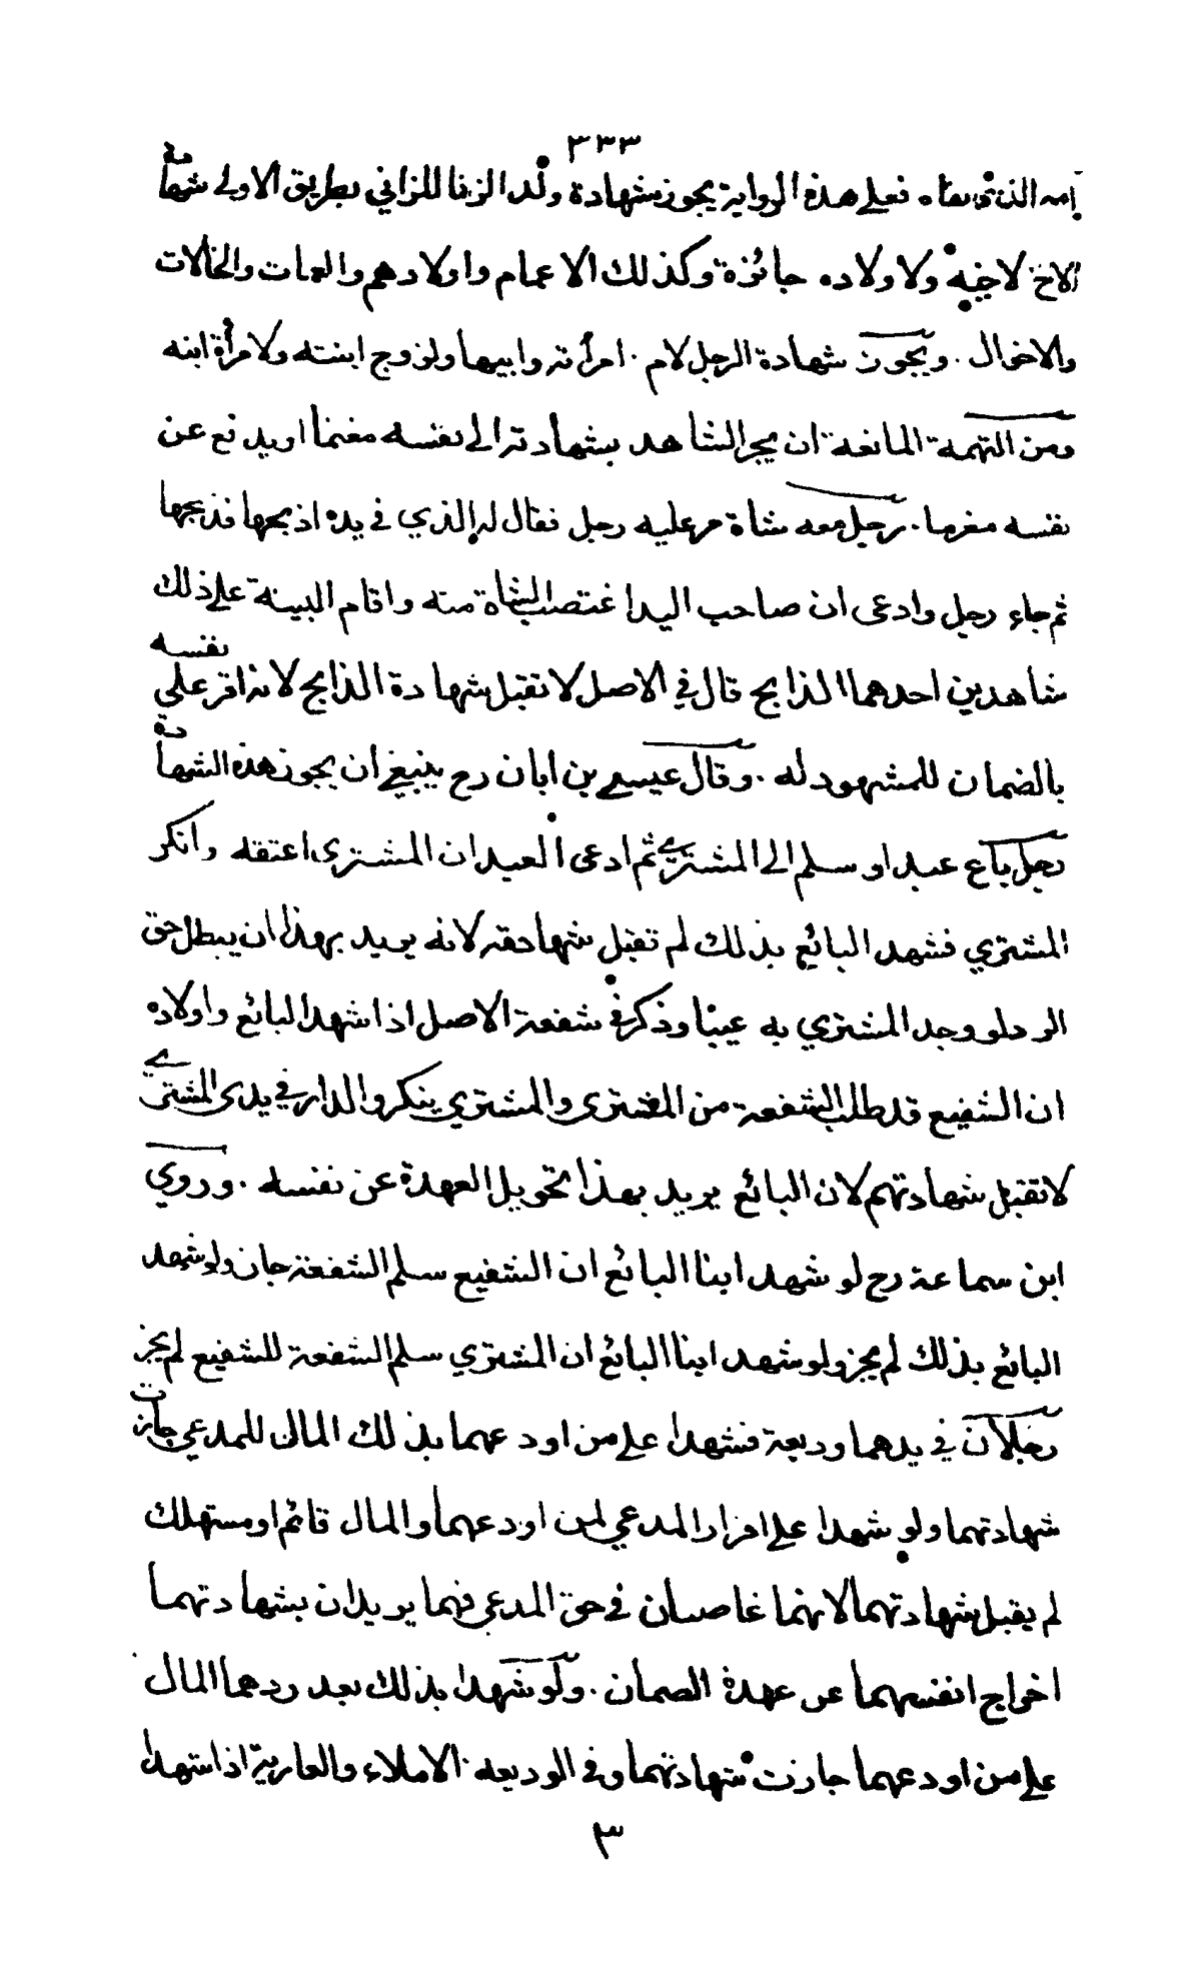 ٣٣٣
فعلى هذه الرواية يجوز شهادة ولد الزنا للزاني بطريق الاولى شهادة
الاخ لاخيه ولاولاده جائزة وكذلك الاعمام واولادهم والعمات والخالات
والاخوال . ويجوز شهادة الرجل لام امرأته وابيها ولزوج ابنته ولامرأة ابنه
ومن التهمة المانعة ان يجر الشاهد بشهادته الى نفسه مغنما او يدفع عن
نفسه مغرما . رجل معه شاة مر عليه رجل فقال له الذي في يده اذبحها فذبحها
ثم جاء رجل وادعى ان صاحب اليد اغتصب الشاة منه واقام البينة على ذلك
شاهدين احدهما الذابح قال في الاصل لا تقبل شهادة الذابح لانه اقر على نفسه
بالضمان للمشهود له . وقال عيسى بن ابان رح ينبغي ان يجوز هذه الشهادة
رجل باع عبدا وسلم الى المشتري ثم ادعى العبد ان المشترى اعتقه وانكر
المشتري فشهد البائع بذلك لم تقبل شهادته لانه يريد بهذا ان يبطل حق
الرد لو وجد المشتري به عيبا وذكر في شفعة الاصل اذا شهد البائع واولاده
ان الشفيع قد طلب الشفعة من المشترى والمشتري ينكر والدار في يدى المشتري
لا تقبل شهادتهم لان البائع يريد بهذا تحويل العهدة عن نفسه . وروي
ابن سماعة رح لو شهد ابنا البائع ان الشفيع سلم الشفعة جاز ولو شهد
البائع بذلك لم يجز ولو شهد ابنا البائع ان المشتري سلم الشفعة للشفيع لم يجز
رجلان في يدهما وديعة فشهدا على من اودعهما بذلك المال للمدعي جازت
شهادتهما ولو شهدا على اقرار المدعي لمن اودعهما والمال قائم او مستهلك
لم يقبل شهادتهما لانهما غاصبان في حق المدعي فهما يريدان بشهادتهما
اخراج انفسهما عن عهدة الضمان . ولو شهدا بذلك بعد ردهما المال
على من اودعهما جازت شهادتهما وفي الوديعة الاملاء والعارية اذا شهدا
٣